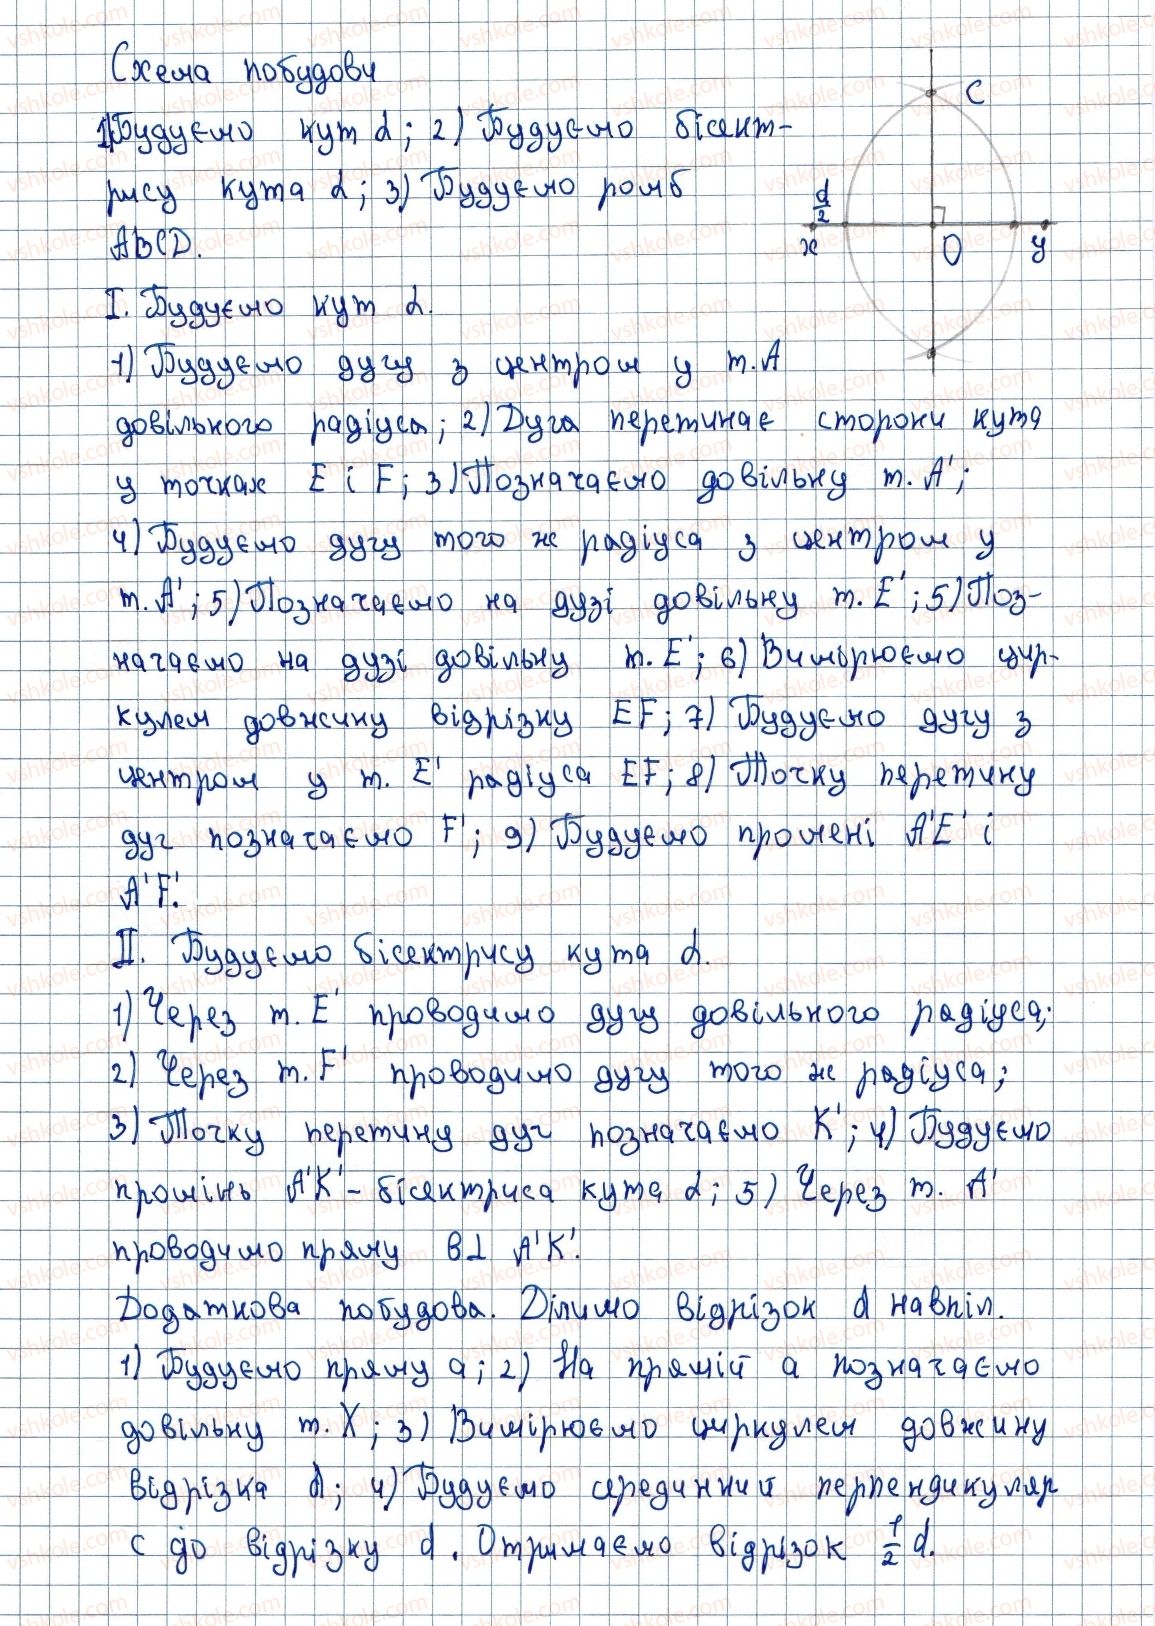 Схема побудови
1) Будуємо кут α; 2) Будуємо бісект-
рису кута α; 3) Будуємо ромб
ABCD.
C
d/2
x
O
y
I. Будуємо кут α.
1) Будуємо дугу з центром у т. A
довільного радіуса; 2) Дуга перетинає сторони кута
у точках E і F; 3) Позначаємо довільну т. A';
4) Будуємо дугу того ж радіуса з центром у
т. A'; 5) Позначаємо на дузі довільну т. E'; 5) Поз-
начаємо на дузі довільну т. E'; 6) Вимірюємо цир-
кулем довжину відрізку EF; 7) Будуємо дугу з
центром у т. E' радіуса EF; 8) Точку перетину
дуг позначаємо F'; 9) Будуємо промені A'E' і
A'F'.
II. Будуємо бісектрису кута α.
1) Через т. E' проводимо дугу довільного радіуса;
2) Через т. F' проводимо дугу того ж радіуса;
3) Точку перетину дуг позначаємо K'; 4) Будуємо
промінь A'K' - бісектриса кута α; 5) Через т. A'
проводимо пряму в⊥ A'K'.
Додаткова побудова. Ділимо відрізок d навпіл.
1) Будуємо пряму a; 2) На прямій a позначаємо
довільну т. X; 3) Вимірюємо циркулем довжину
відрізка d; 4) Будуємо серединний перпендикуляр
c до відрізку d. Отримаємо відрізок 1/2 d.
vshkole.com